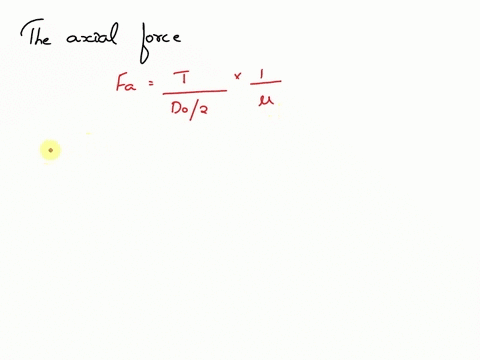 The axial force
Fa = T / (Do/2) × 1 / μ